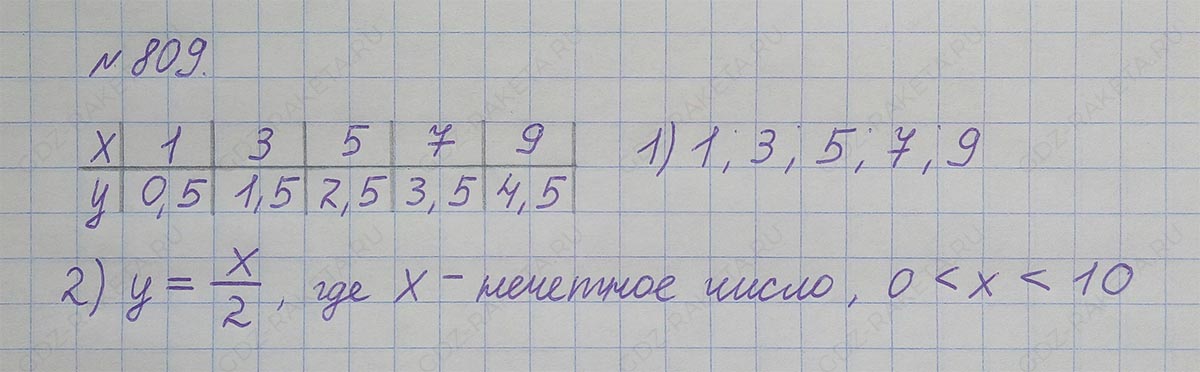 № 809.
x | 1 | 3 | 5 | 7 | 9
y | 0,5 | 1,5 | 2,5 | 3,5 | 4,5
1) 1; 3; 5; 7; 9
2) y = x/2, где x – нечетное число, 0 < x < 10
GDZ-RAKETA.RU